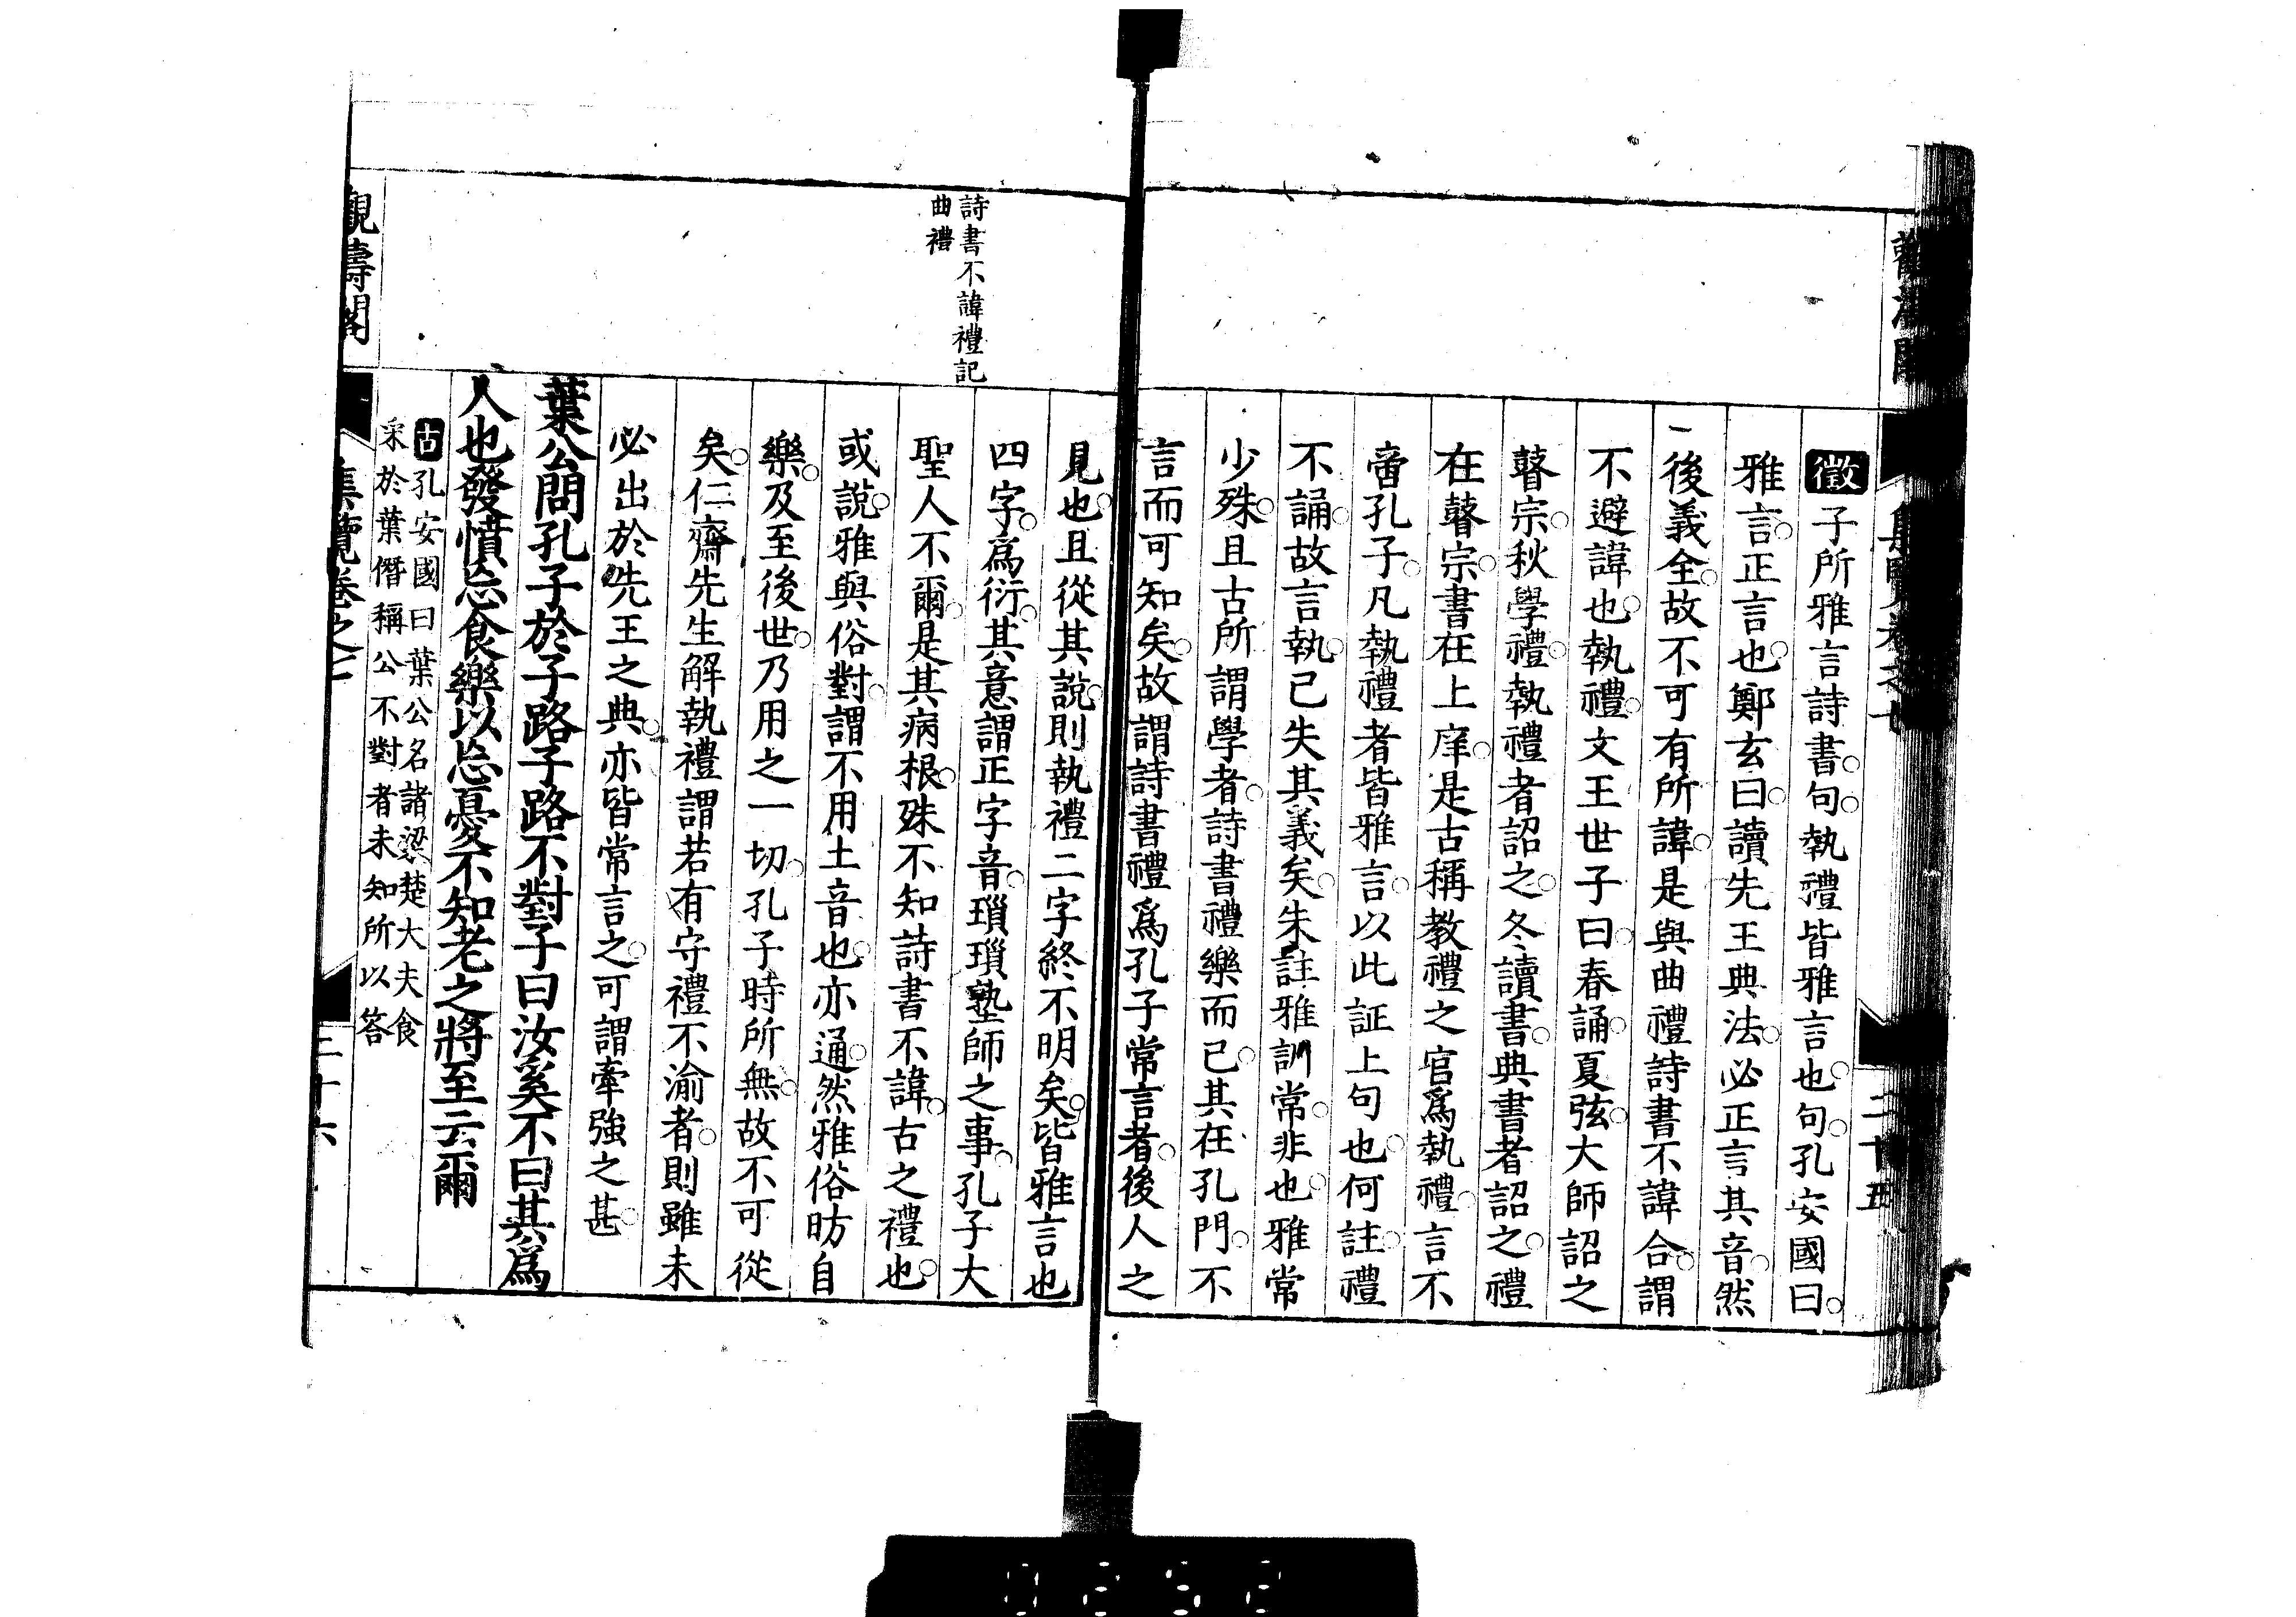 徵子所雅言詩書○句○執禮皆雅言也○句○孔安國曰○
雅言○正言也○鄭玄曰○讀先王典法○必正言其音○然
後義全○故不可有所諱○是與曲禮詩書不諱合○謂
不避諱也○執禮○文王世子曰○春誦○夏弦○大師詔之
瞽宗○秋學禮○執禮者詔之○冬讀書○典書者詔之○禮
在瞽宗○書在上庠○是古稱教禮之官爲執禮○言不
啻孔子○凡執禮者皆雅言○以此証上句也○何註○禮
不誦○故言執○已失其義矣○朱註雅訓常○非也○雅常
少殊○且古所謂學者○詩書禮樂而已○其在孔門○不
言而可知矣○故謂詩書禮爲孔子常言者○後人之
二十五
詩書不諱禮記
曲禮
見也○且從其說○則執禮二字終不明矣○皆雅言也
四字○爲衍○其意謂正字音○瑣瑣塾師之事○孔子大
聖人不爾○是其病根○殊不知詩書不諱○古之禮也○
或說○雅與俗對○謂不用土音也○亦通○然雅俗昉自
樂○及至後世○乃用之一切○孔子時所無○故不可從
矣○仁齋先生解執禮謂若有守禮不渝者○則雖未
必出於先王之典○亦皆常言之○可謂牽強之甚○
葉公問孔子於子路子路不對子曰汝奚不曰其爲
人也發憤忘食樂以忘憂不知老之將至云爾
古孔安國曰葉公名諸梁楚大夫食
采於葉僭稱公不對者未知所以答
觀濤閣
集覽卷之七
二十六